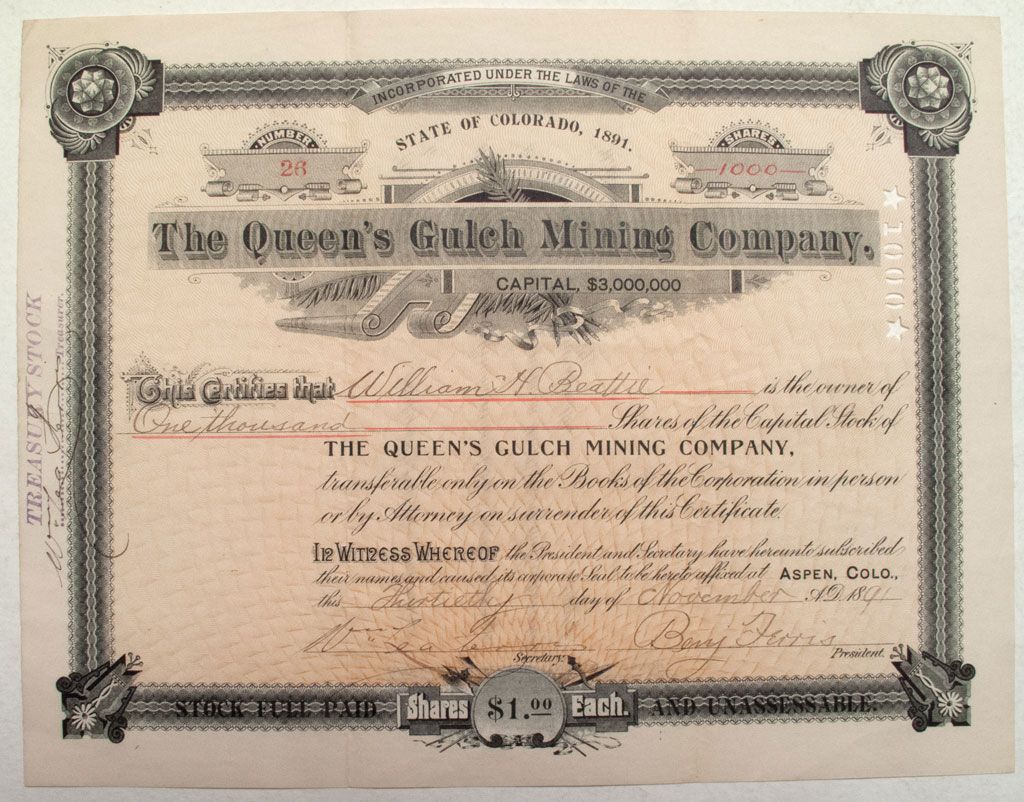 INCORPORATED UNDER THE LAWS OF THE
STATE OF COLORADO, 1891.
NUMBER
26
SHARES
1000
The Queen's Gulch Mining Company.
CAPITAL, $3,000,000
★1000★
This Certifies that William H. Beattie is the owner of
One thousand Shares of the Capital Stock of
THE QUEEN'S GULCH MINING COMPANY,
transferable only on the Books of the Corporation in person
or by Attorney on surrender of this Certificate.
In Witness Whereof the President and Secretary have hereunto subscribed
their names and caused its corporate Seal to be hereto affixed at ASPEN, COLO.,
this Thirtieth day of November A.D. 1891
Wm
Secretary.
Benj Ferris
President.
STOCK FULL PAID Shares $1.00 Each. AND UNASSESSABLE.
TREASURY STOCK
Treasurer.